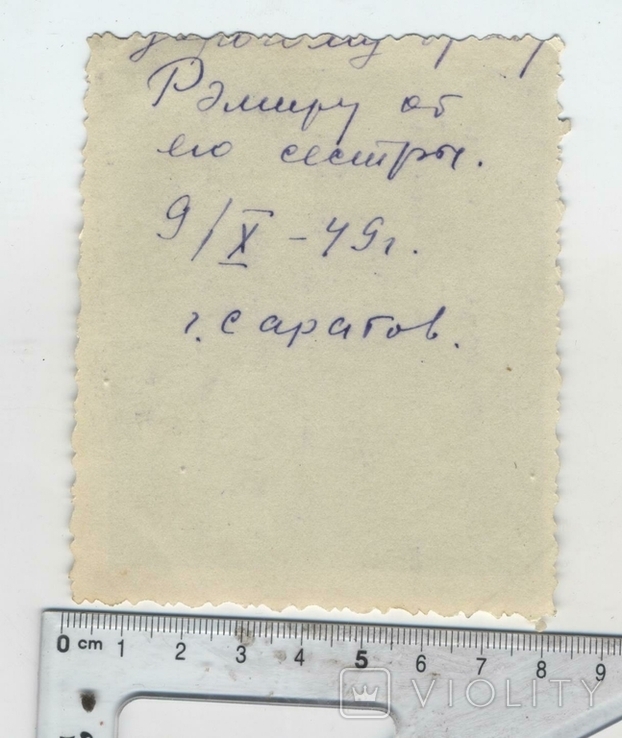 Рэмиру от
его сестры.
9/X - 49г.
г. Саратов.
0 cm 1 2 3 4 5 6 7 8 9
VIOLITY